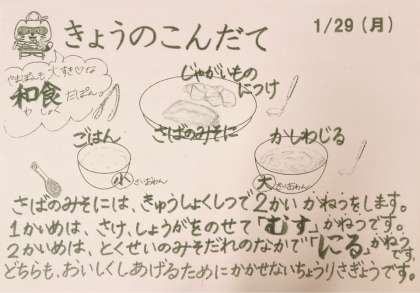 きょうのこんだて
1/29（月）
やっぱり大すき♡な
和食
わしょく
だポン♪
じゃがいもの
につけ
さばのみそに
ごはん
小 さいおわん
かしわじる
大 きいおわん
さばのみそには、きゅうしょくしつで2かいかねつをします。
1かいめは、さけ、しょうがをのせて「むす」かねつです。
2かいめは、とくせいのみそだれのなかで「にる」かねつです。
どちらも、おいしくしあげるためにかかせないちょうりさぎょうです。